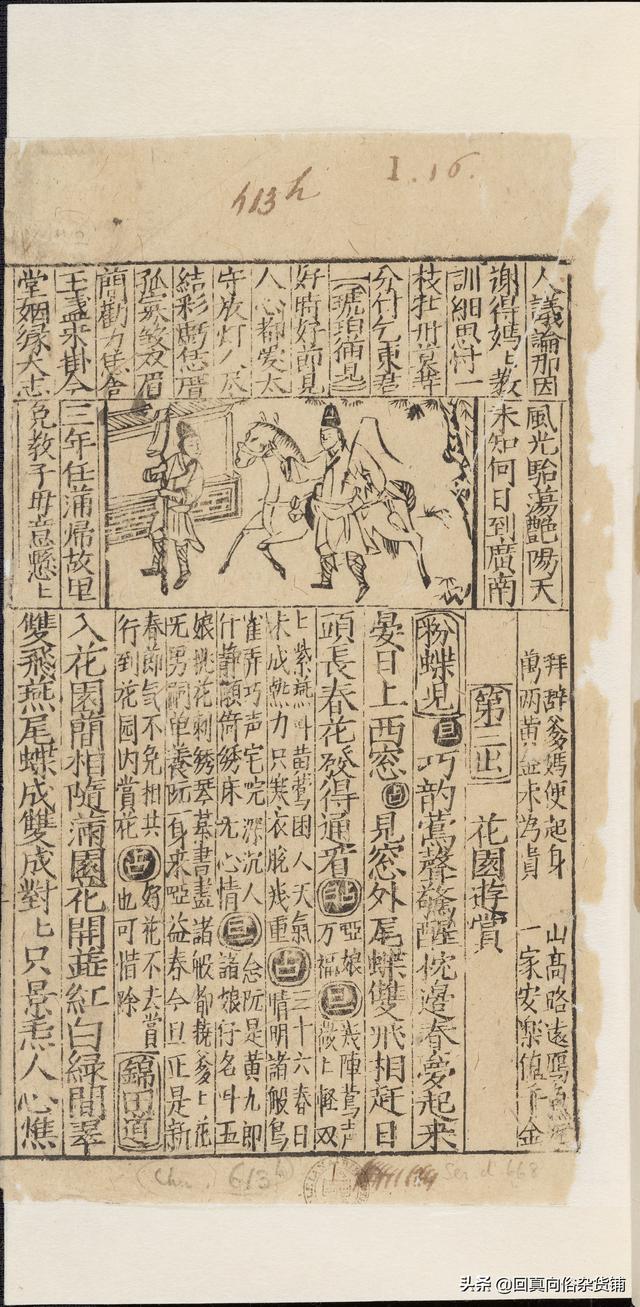 h13h
I.16.
人議論那因
謝得媽〻教
訓細思忖一
枝牡丹
分付乞東君
好時好節見
人心都愛大
守放灯
結彩
孤
簡勸
玉盞來掛今
堂姻緣大志
風光駘蕩艷陽天
未知何日到廣南
三年任滿歸故里
免教子母意懸〻
拜辭爹媽便起身
山高路遠
萬兩黃金未為貴
一家安樂值千金
第三出
花園遊賞
粉蝶児
旦
巧韵鶯聲驚醒枕邊春夢起來
晏日上西窓
占
見窓外尾蝶雙飛相赶日
頭長春花發得通看
万福
啞娘
旦
幾陣鶯声
歲上輕双
上紫燕叫苗鶯困人天氣
占
三十六春日
未成熱力只寒衣脫幾重
晴明諸般鳥
雀弄巧声宅院深沉人
旦
念阮是黃九郎
什靜頋倚綉床无心情
諸娘仔名叫五
娘挑花刺綉琴棊書畫諸般都挠爹〻花
无男嗣単養阮一身來啞益春今旦正是新
春節気不免相共
占
好花不去賞
行到花园内賞花
也可惜除
錦田道
入花園簡相隨滿園花開蕋紅白綠間翠
雙飛燕尾蝶成雙成對〻只景焘人心憔
(Chin.) 613h
Ser. d 668
头条 @回真向俗杂货铺